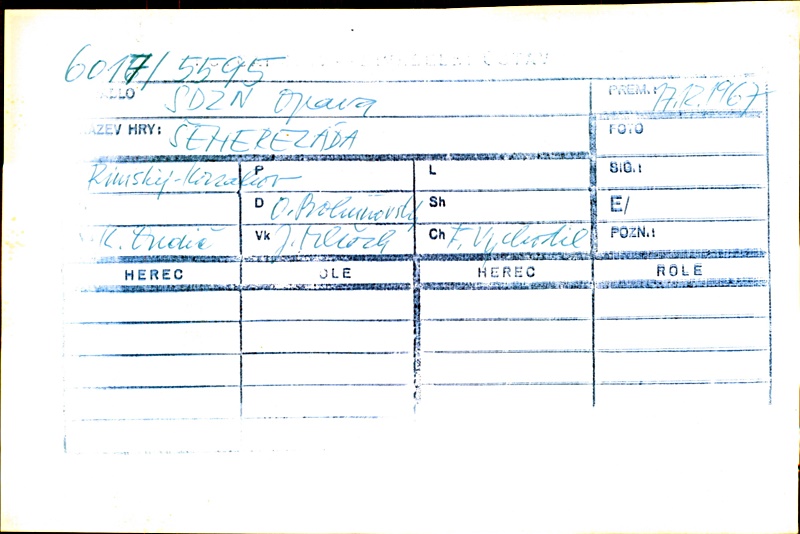 6017/5595
DLO SDZN Opava PREM.: 17.12.1967
ÁZEV HRY: ŠEHEREZÁDA FOTO
Rimskij-Korzakov P L SIG.:
D O. Bohumovský Sh E/
Vk Ch F. Vychodil POZN.:
HEREC OLE HEREC ROLE